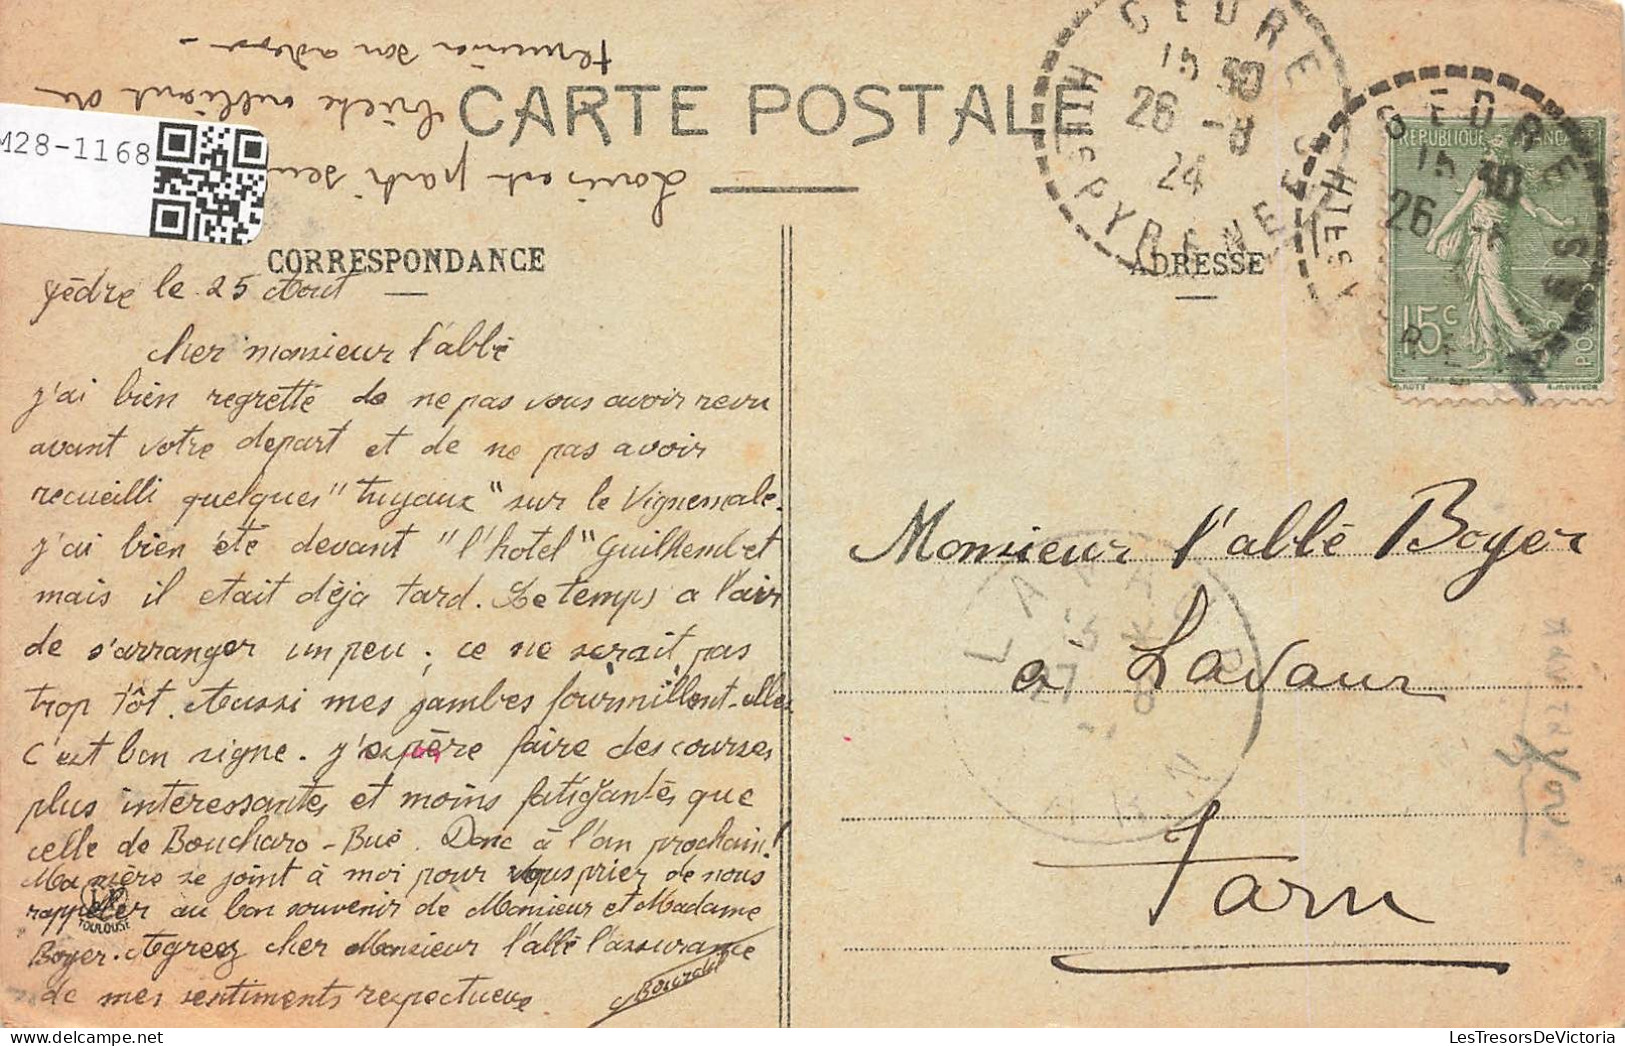 M28-1168
CARTE POSTALE
Louis est parti
terminer son adresse
CORRESPONDANCE
ADRESSE
GEDRE
15 30
26 -8
24
HTES PYRENEES
GEDRE
15 30
26
HTES
REPUBLIQUE FRANCAISE
15c
POSTES
Gèdre le 25 Aout
Cher monsieur l'abbé
j'ai bien regretté de ne pas vous avoir revu
avant votre depart et de ne pas avoir
recueilli quelques "tuyaux" sur le Vignemale.
j'ai bien été devant "l'hotel" Guilhembet
mais il etait déja tard. Le temps a l'air
de s'arranger un peu ; ce ne serait pas
trop tôt. Aussi mes jambes fourmillent-elles
c'est bon signe. j'espère faire des courses
plus interessantes et moins fatigantes que
celle de Boucharo - Bué. Donc à l'an prochain!
Ma mère se joint à moi pour vous prier de nous
rappeler au bon souvenir de Monsieur et Madame
Boyer. Agreez cher Monsieur l'abbé l'assurance
de mes sentiments respectueux
TOULOUSE
Monsieur l'abbé Boyer
a Lavaur
Tarn
LAVAUR
27
TARN
LesTresorsDeVictoria